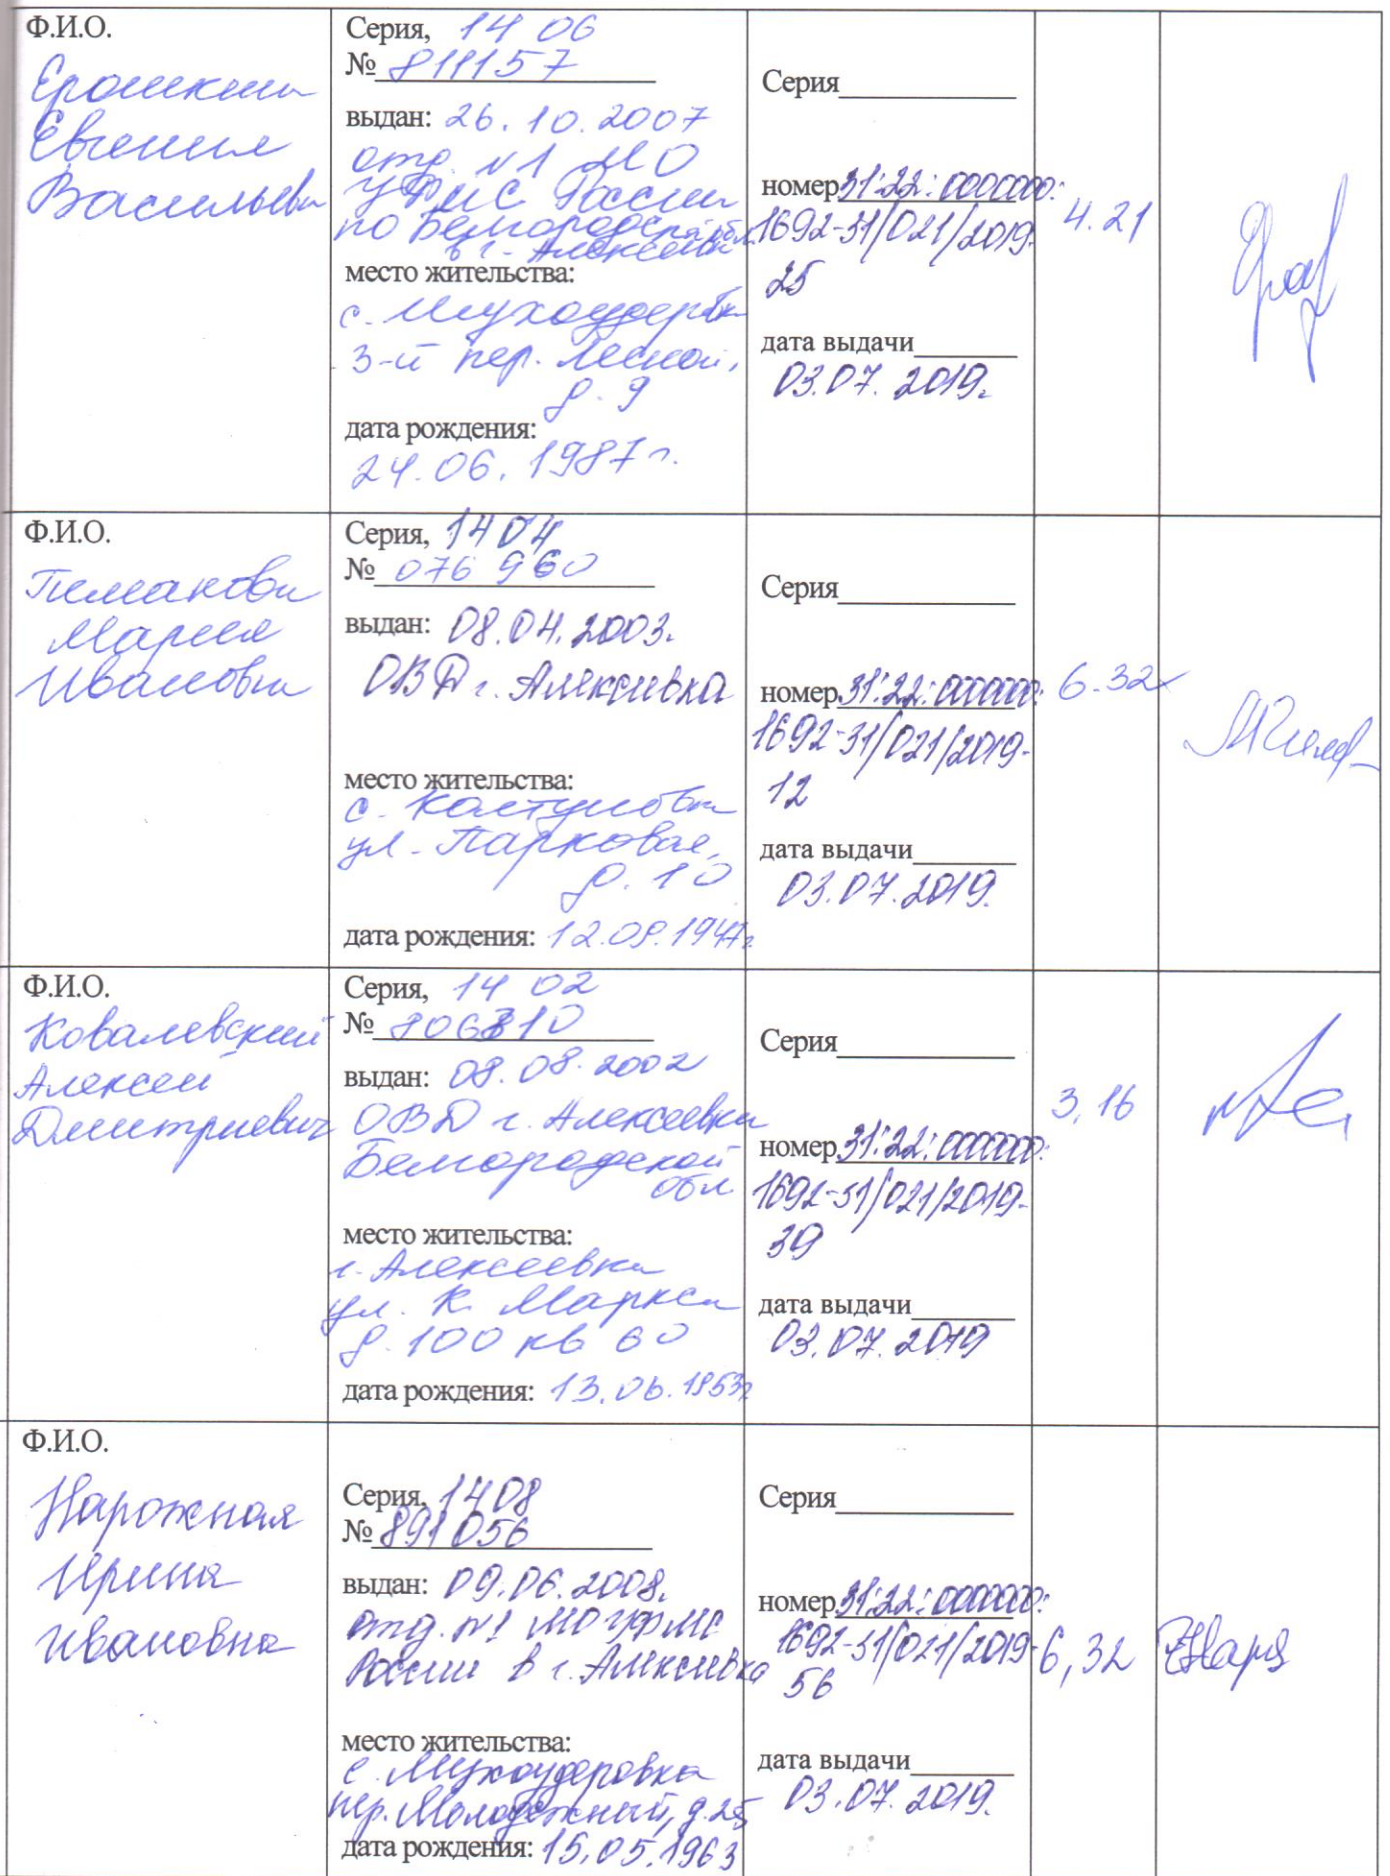 Ф.И.О.
Ерошкина
Евгения
Васильевна
Серия, 14 06
№ 811157
выдан: 26.10.2007
отд. №1 МО
УФМС России
по Белгородской обл.
в г. Алексеевк
место жительства:
с. Мухоудеровка
3-й пер. Лесной,
д. 9
дата рождения:
24.06.1987 г.
Серия
номер 31:22:0000000:
1692-31/021/2019-
25
дата выдачи
03.07.2019.
4.21
Ф.И.О.
Мария
Ивановна
Серия, 1404
№ 076 960
выдан: 08.04.2003.
ОВД г. Алексеевка
место жительства:
с. Колтуновка
ул. Парковая,
д. 10
дата рождения: 12.09.1947г
Серия
номер 31:22:0000000:
1692-31/021/2019-
12
дата выдачи
03.07.2019.
6.32
Ф.И.О.
Ковалевский
Алексей
Дмитриевич
Серия, 14 02
№
выдан: 08.08.2002
ОВД г. Алексеевка
Белгородской
обл
место жительства:
г. Алексеевка
ул. К. Маркса
д. 100 кв 60
дата рождения: 13.06.1953г
Серия
номер 31:22:0000000:
1692-31/021/2019-
39
дата выдачи
03.07.2019
3,16
Ф.И.О.
Нарожная
Ирина
Ивановна
Серия, 1408
№ 891056
выдан: 09.06.2008.
отд. №1 МО УФМС
России в г. Алексеевка
место жительства:
с. Мухоудеровка
пер. Молодежный, д.25
дата рождения: 15.05.1963
Серия
номер 31:22:0000000:
1692-31/021/2019-
56
дата выдачи
03.07.2019.
6,32